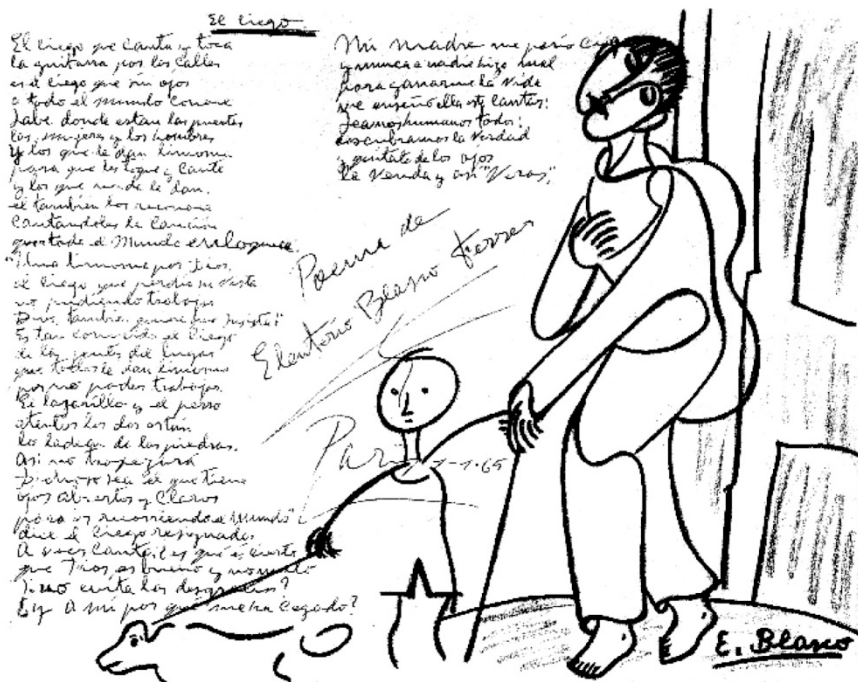 El ciego
El ciego que canta y toca
la guitarra por las calles
es el ciego que sin ojos
a todo el mundo conoce
Sabe donde estan las puertas
las mujeres y los hombres
Y los que le dan limosna
para que les toque y cante
y los que no le dan,
el tambien los reconoce
Cantandoles la Canción
que todo el Mundo enloquece.
"Una limosna por Dios,
al ciego que perdio su vista
no pudiendo trabajar
Dios, tambien quiere que"
Estan con el ciego
de las gentes del lugar
que todos le dan limosna
por no poder trabajar.
El lazarillo y el perro
atentos los dos estan
los de las piedras.
Asi no tropezará
Dichoso sea el que tiene
ojos abiertos y Claros
para ir recorriendo el mundo"
dice el ciego resignado
A veces canta: ¿es que es cierto
que Dios, es bueno y
Si no evita las desgracias?
¿y A mi por qué me ha Cegado?
Mi madre me pario Ciego
y nunca a nadie hizo mal
para ganarme la Vida
me enseño ella este Cantar:
Seamos humanos todos;
descubramos la Verdad
y quitate de los ojos
la Venda y asi "Veras",
Poema de
Eleuterio Blasco Ferrer
Par 65
E. Blasco